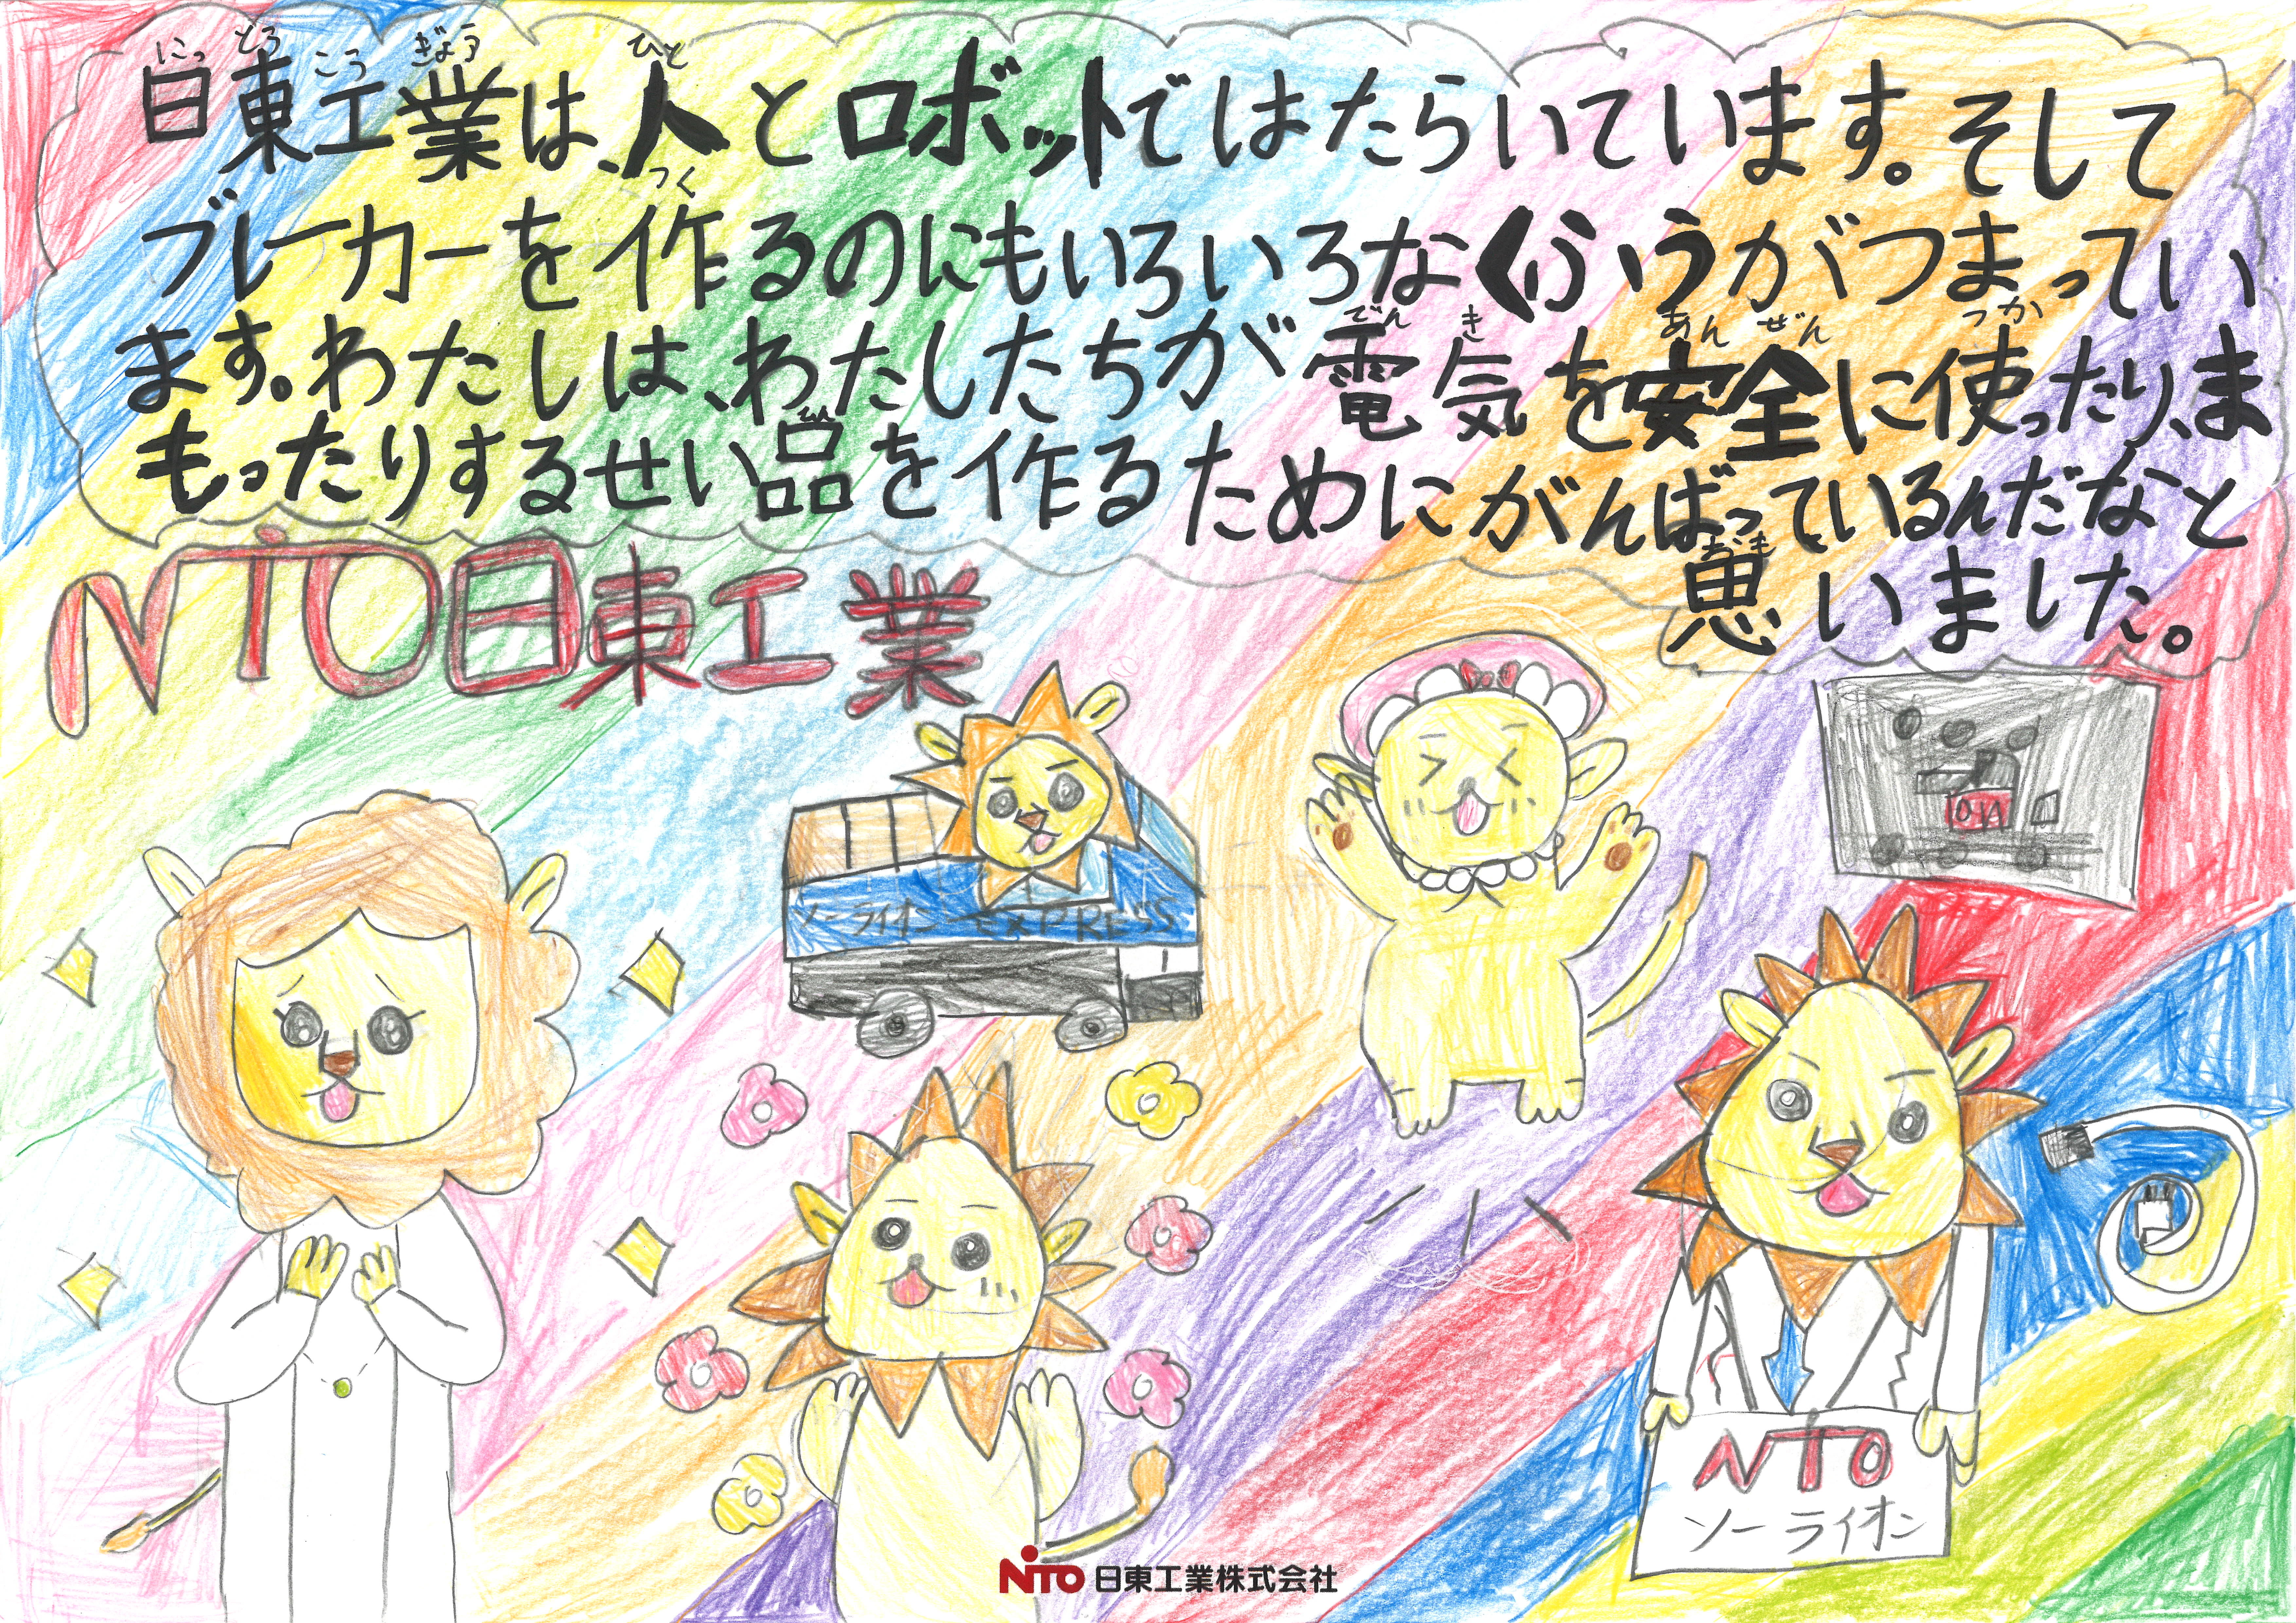 日東工業は、人とロボットではたらいています。そして
ブレーカーを作るのにもいろいろなくふうがつまってい
ます。わたしは、わたしたちが電気を安全に使ったり、ま
もったりするせい品を作るためにがんばっているんだなと
思いました。
NITO日東工業
ソーライオン EXPRESS
NITO
ソーライオン
NITO 日東工業株式会社